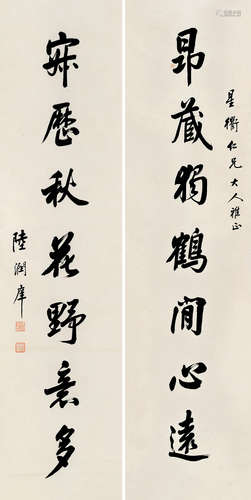 星衢仁兄大人雅正
昂藏獨鶴閒心遠
寂歷秋花野意多
陸潤庠